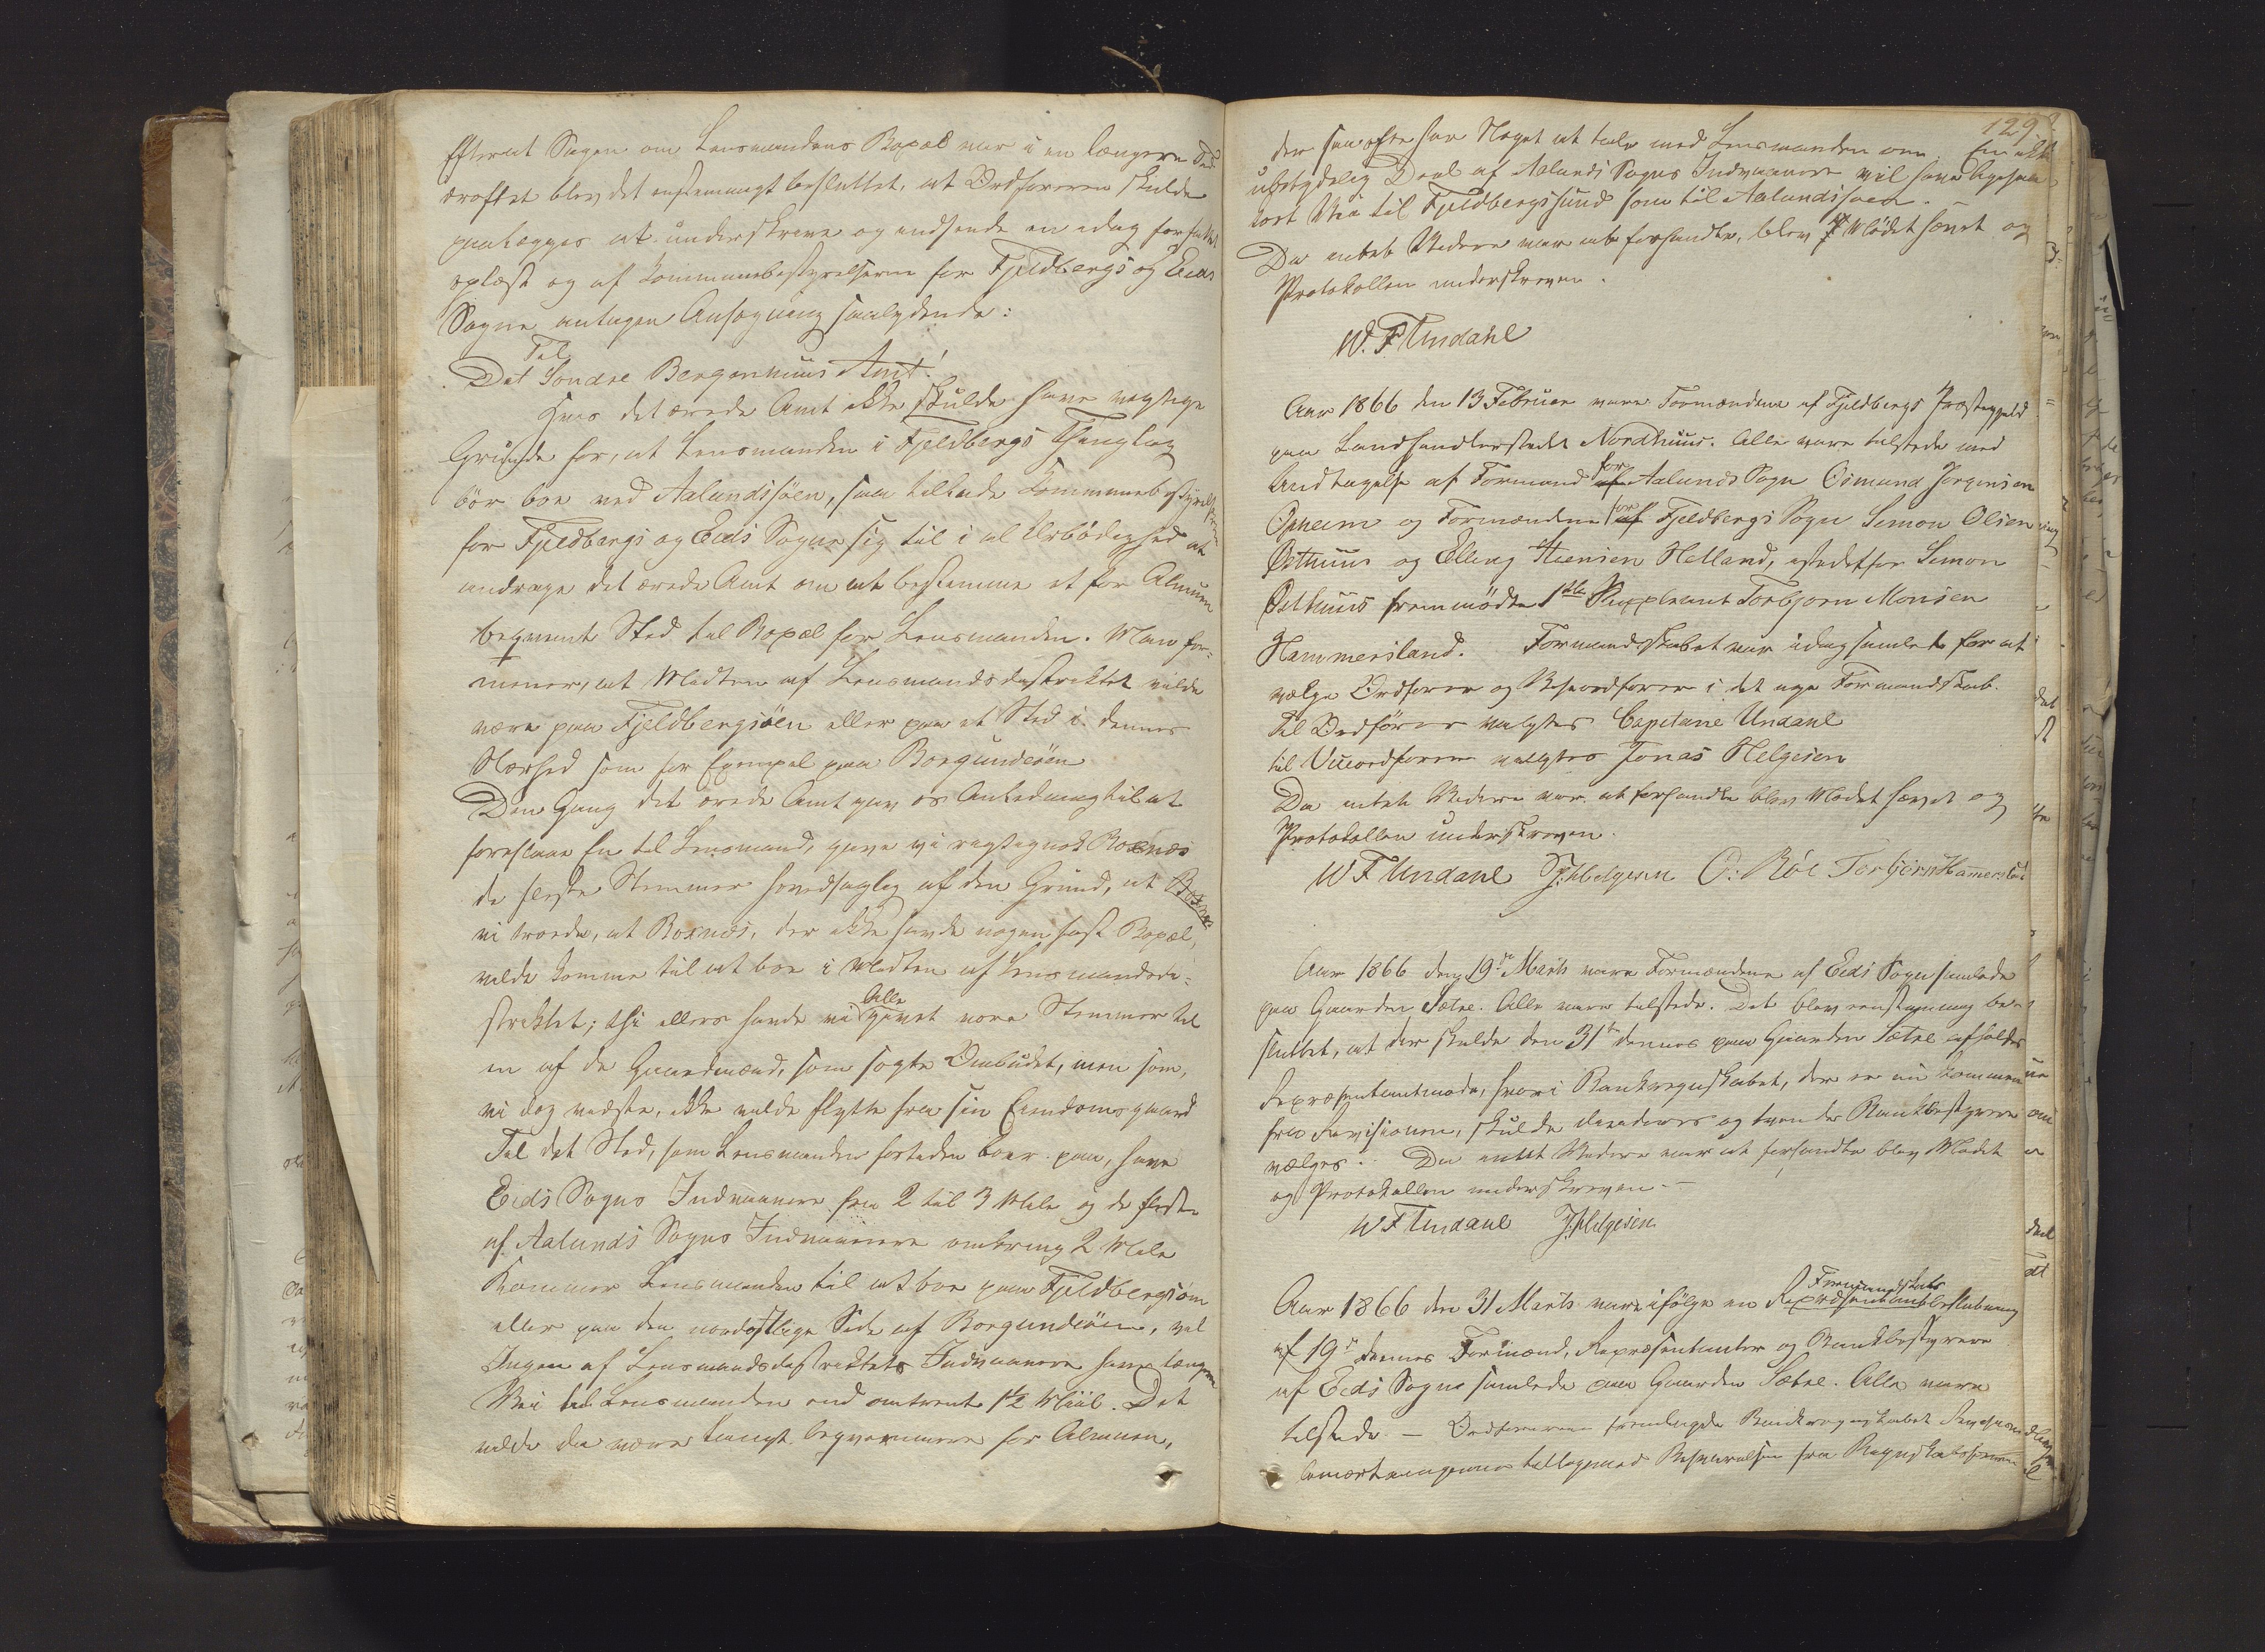 Efterat Sagen om Lensmandens Bopæl var i en længere Tid
drøftet blev det enstemmigt besluttet, at Ordføreren skulde
paalægges at underskrive og indsende en idag forfattet
oplæst og af Kommunebestyrelserne for Fjeldbergs og Eids
Sogne antagen Ansøgning saalydende:
Til
Det Søndre Bergenhuus Amt!
Hvis det ærede Amt ikke skulde have vigtige
Grunde for, at Lensmanden i Fjeldbergs Thinglag
bør boe ved Aalundsöen, saa tillade Kommunebestyrelserne
for Fjeldbergs og Eids Sogne sig til i al Ærbödighed at
andrage det ærede Amt om at bestemme et for Almuen
beqvemt Sted til Bopæl for Lensmanden. Man for-
mener, at Midten af Lensmandsdistriktet vilde
være paa Fjeldbergsöen eller paa et Sted i dennes
Nærhed som for Exempel paa Borgundöen
Den Gang det ærede Amt gav os Anledning til at
foreslaae En til Lensmand, gave vi rigtignok Boxnæs
de fleste Stemmer hovedsaglig af den Grund, at Boxnæs
vi troede, at Boxnæs, der ikke havde nogen fast Bopæl,
vilde komme til at boe i Midten af Lensmandsdi-
striktet; thi ellers havde vi Alle givet vore Stemmer til
en af de Gaardmænd, som søgte Ombudet, men som,
vi dog vidste, ikke vilde flytte fra sin Eiendomsgaard
Til det Sted, som Lensmanden fortiden boer paa, have
Eids Sogns Indvaanere fra 2 til 3 Mile og de fleste
af Aalunds Sogns Indvaanere omkring 2 Mile
Kommer Lensmanden til at boe paa Fjeldbergsöen
eller paa den nordostlige Side af Borgundöen, vil
Ingen af Lensmandsdistriktets Indvaanere have længere
Vei til Lensmanden end omtrent 1½ Miil. Det
vilde da være langt beqvemmere for Almuen,
129
der saa ofte har Noget at tale med Lensmanden om. En ikke
ubetydelig Deel af Aalunds Sogns Indvaanere vil have ligesaa
kort Vei til Fjeldbergssund som til Aalundsöen.
Da intet Videre var at forhandle, blev Mödet hævet og
Protokollen underskreven.
W. F Undahl
Aar 1866 den 13 Februar vare Formændene af Fjeldbergs Præstegjeld
paa Landhandlerstedet Nordhuus. Alle vare tilstede med
Undtagelse af Formand for Aalunds Sogn Osmund Jørgensen
Opheim og Formændene for Fjeldbergs Sogn Simon Olsen
Østhuus og Elling Hansen Helland, istedetfor Simon
Østhuus fremmödte 1ste Suppleant Torbjørn Monsen
Hammersland. Formandskabet var idag samlet for at
vælge Ordfører og Viceordfører i det nye Formandskab.
Til Ordförer valgtes Capitaine Undahl
til Viceordfører valgtes Jonas Helgesen
Da intet Videre var at forhandle blev Mødet hævet og
Protokollen underskreven.
W F Undahl J. Helgesen O: Röe Torbjörn Hammersland
Aar 1866 den 19de Marts vare Formændene af Eids Sogn samlede
paa Gaarden Sætre. Alle vare tilstede. Det blev eenstemmig be-
sluttet, at der skulde den 31te dennes paa Gaarden Sætre afholdes
Repræsentantmøde, hvori Bankregnskabet, der er nu kommen
fra Revisionen, skulde decideres og tvende Bankbestyrere
vælges. Da intet Videre var at forhandle blev Mødet
og Protokollen underskreven.
W F Undahl J. Helgesen
Formandskabs
Aar 1866 den 31 Marts vare ifölge en Repræsentantbeslutning
af 19de dennes Formænd, Repræsentanter og Bankbestyrere
af Eids Sogn samlede paa Gaarden Sætre. Alle vare
tilstede. – Ordføreren fremlagde Bankregnskabet Revisions
bemærkningerne tilligemed Besvarelsen fra Regnskabsføreren